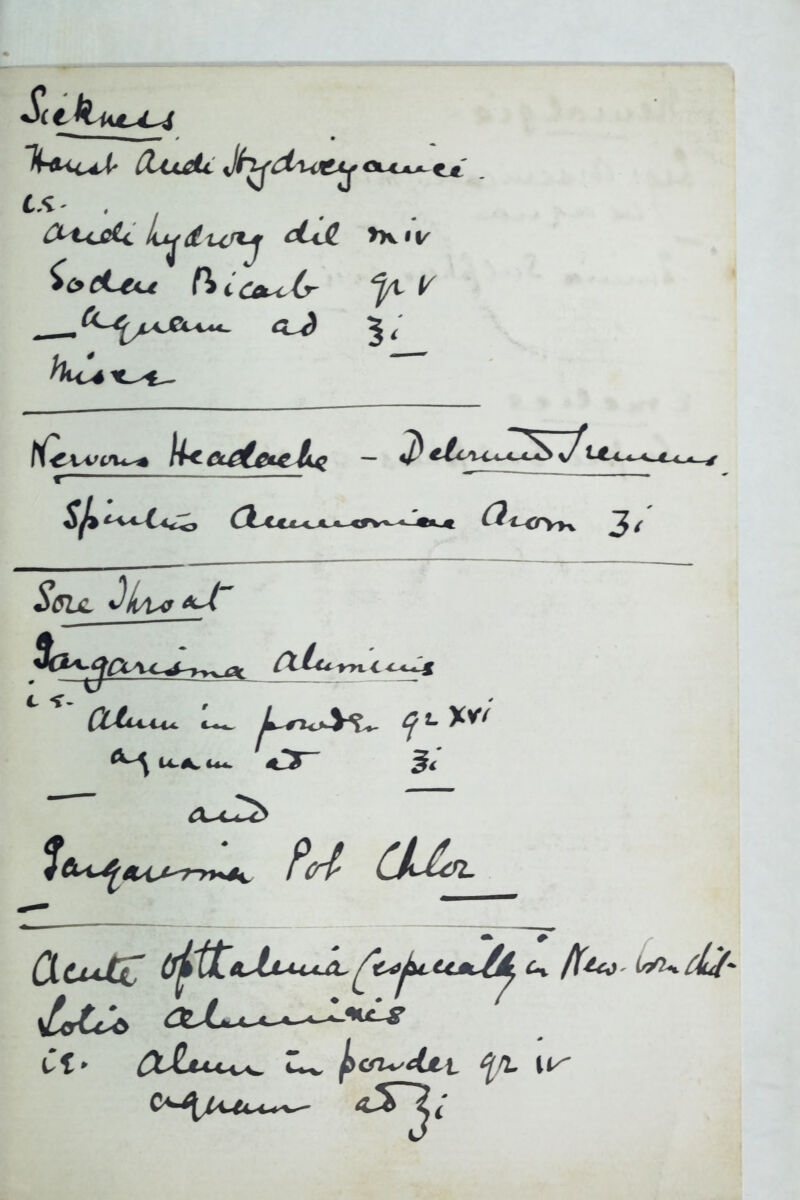 Sickness
Haust Acidi Hydrocyanici.
i.e.
acidi hydrocy dil m iv
Sodae Bicarb gr v
aquam ad ℥i
Misce
Nervous Headache – Delirium Tremens.
Spiritus Ammoniae Arom ʒi
Sore Throat
Gargarisma Aluminis
i.e.
Alum in powder gr xvi
aquam ad ℥i
and
Gargarisma Pot Chlor
Acute Opthalmia (especially in New-born chil-
Lotio Aluminis
ie. Alum in powder gr iv
aquam ad ℥i